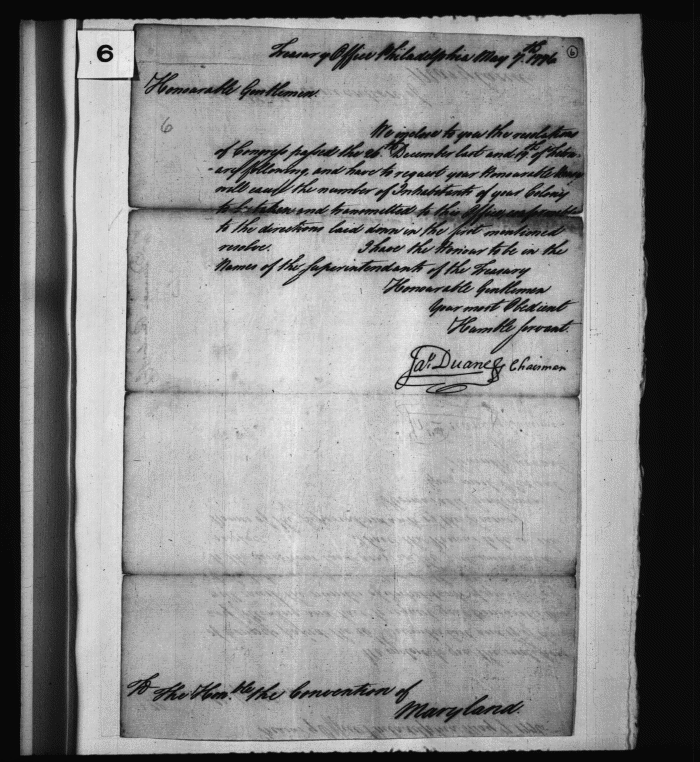 6
Treasury Office Philadelphia May 7.th 1776
6
Honourable Gentlemen.
6
We inclose to you the resolutions
of Congress passed the 26th December last and 19th of Febru-
-ary following, and have to request your Honourable Body
will cause the number of Inhabitants of your Colony
to be taken and transmitted to this Office, conformable
to the directions laid down in the first mentioned
resolve. I have the Honour to be in the
Names of the Superintendants of the Treasury
Honourable Gentlemen
Your most Obedient
Humble servant.
Jas. Duane Chairman
To The Honble the Convention of
Maryland